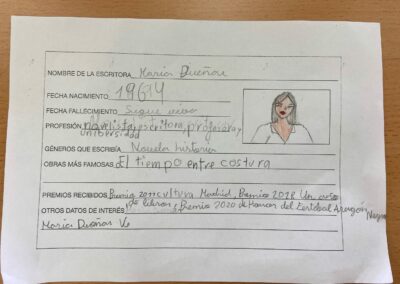 NOMBRE DE LA ESCRITORA María Dueñas
FECHA NACIMIENTO 1964
FECHA FALLECIMIENTO Sigue viva
PROFESIÓN novelista, escritora, profesora y
universidad
GÉNEROS QUE ESCRIBÍA Novela historia
OBRAS MÁS FAMOSAS El tiempo entre costura
PREMIOS RECIBIDOS Premio cultura Madrid, Premio 2018 Un
OTROS DATOS DE INTERÉS libros, Premio 2020 de Honor del Negra
María Dueñas